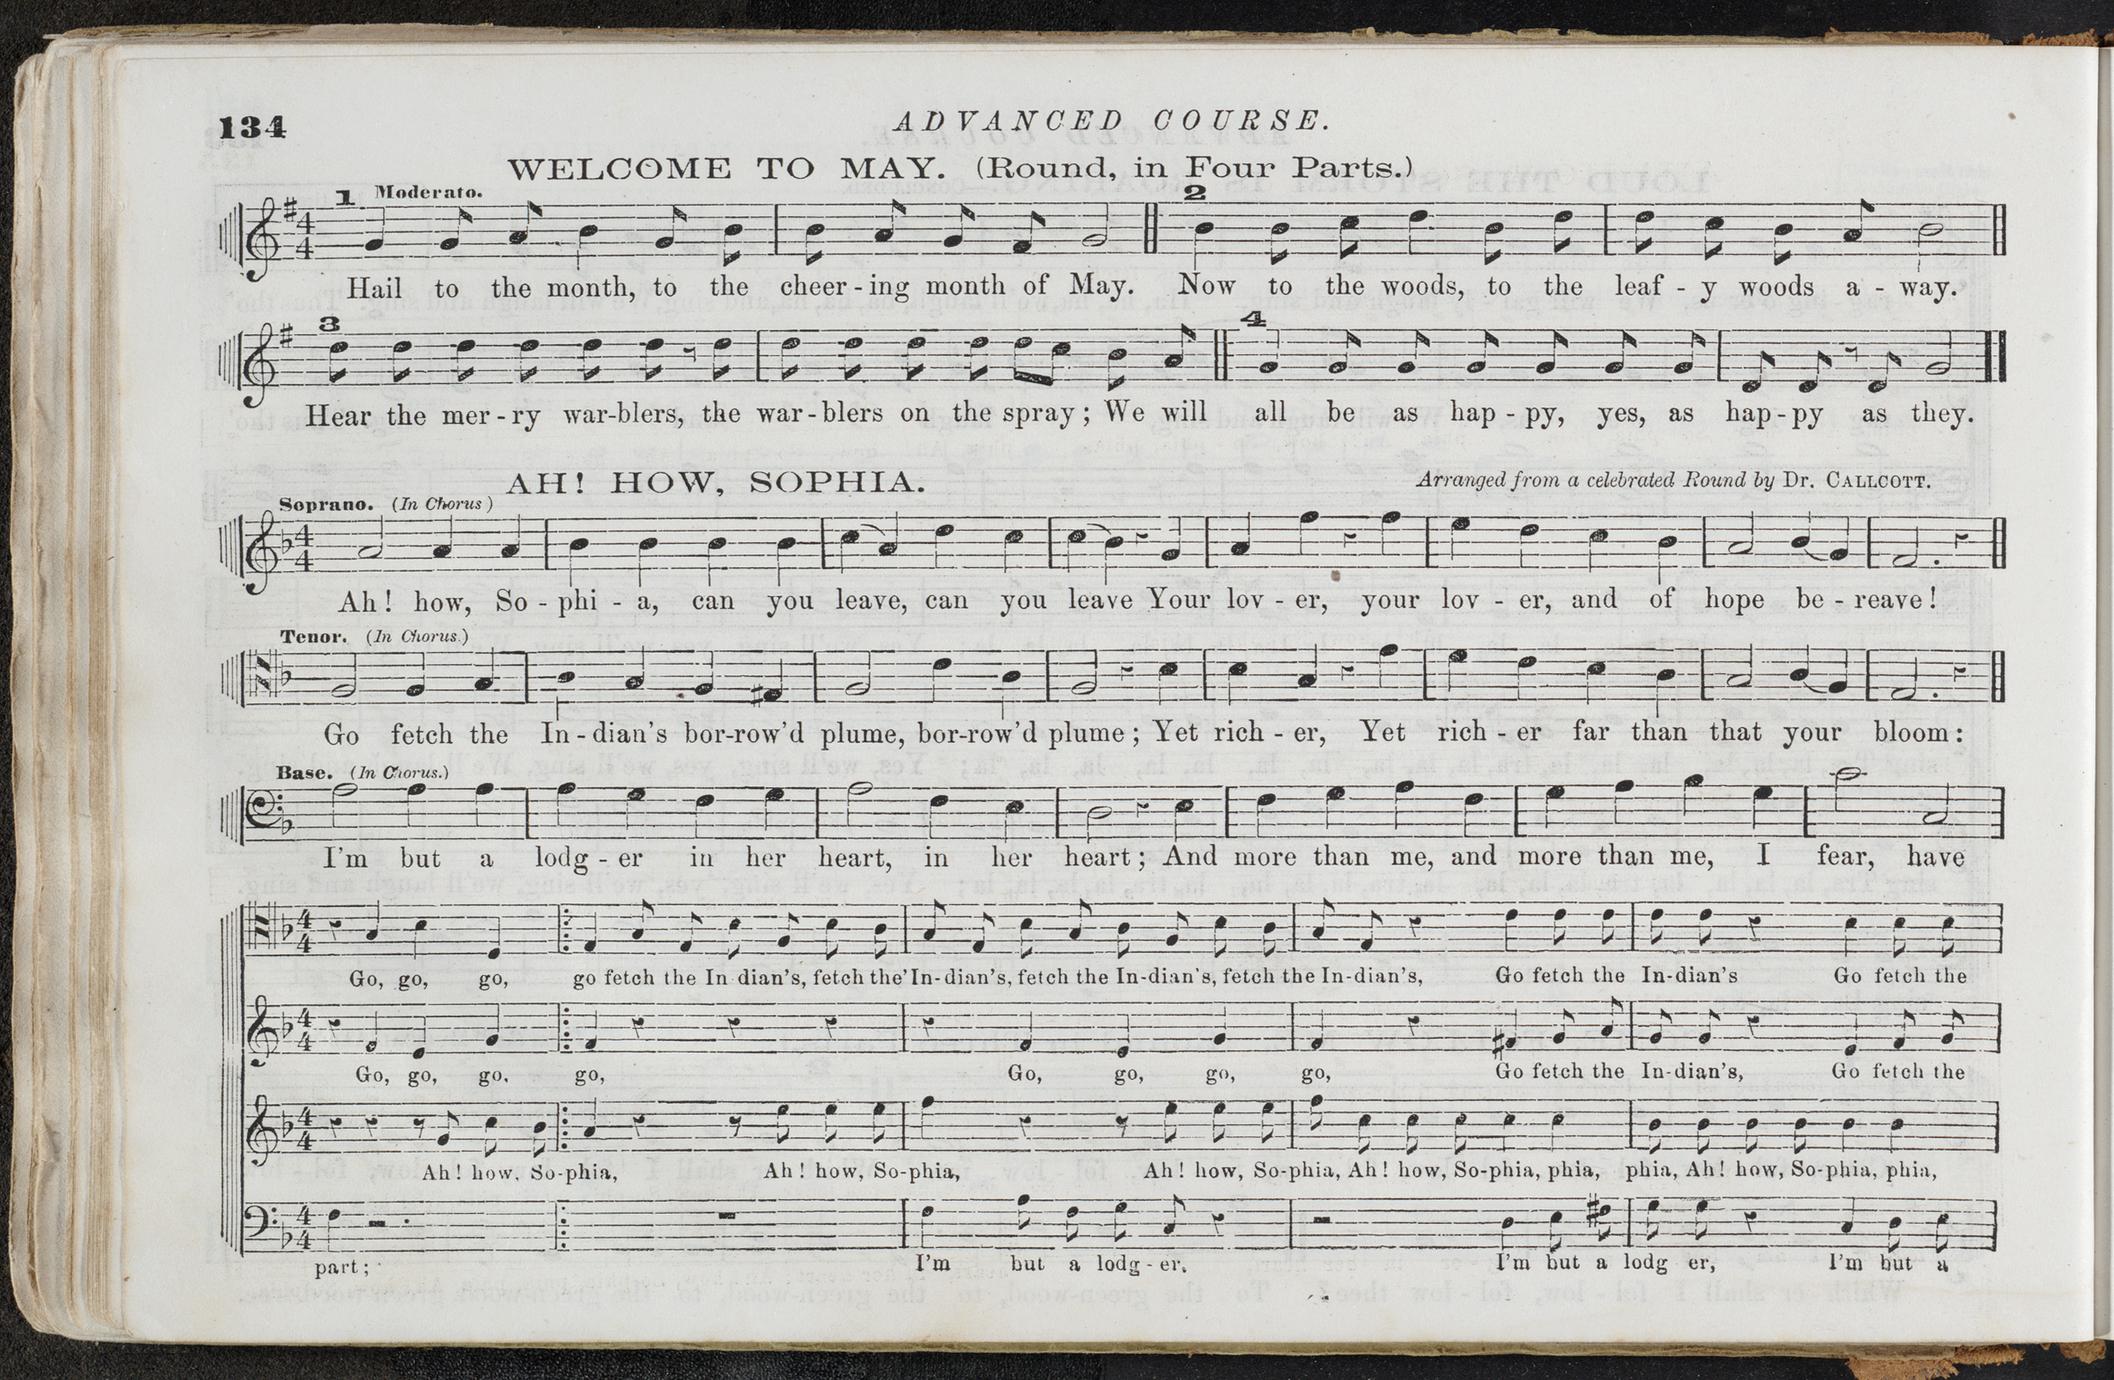 134
ADVANCED COURSE.
WELCOME TO MAY. (Round, in Four Parts.)
1 Moderato. 2
Hail to the month, to the cheer - ing month of May. Now to the woods, to the leaf - y woods a - way.
3 4
Hear the mer - ry war-blers, the war - blers on the spray ; We will all be as hap - py, yes, as hap - py as they.
AH! HOW, SOPHIA. Arranged from a celebrated Round by Dr. CALLCOTT.
Soprano. (In Chorus)
Ah ! how, So - phi - a, can you leave, can you leave Your lov - er, your lov - er, and of hope be - reave !
Tenor. (In Chorus.)
Go fetch the In - dian's bor-row'd plume, bor-row'd plume ; Yet rich - er, Yet rich - er far than that your bloom :
Base. (In Chorus.)
I'm but a lodg - er in her heart, in her heart ; And more than me, and more than me, I fear, have
Go, go, go, go fetch the In dian's, fetch the' In-dian's, fetch the In-dian's, fetch the In-dian's, Go fetch the In-dian's Go fetch the
Go, go, go. go, Go, go, go, go, Go fetch the In-dian's, Go fetch the
Ah ! how, So-phia, Ah ! how, So-phia, Ah ! how, So-phia, Ah ! how, So-phia, phia, phia, Ah ! how, So-phia, phia,
part ; I'm but a lodg - er. I'm but a lodg er, I'm but a